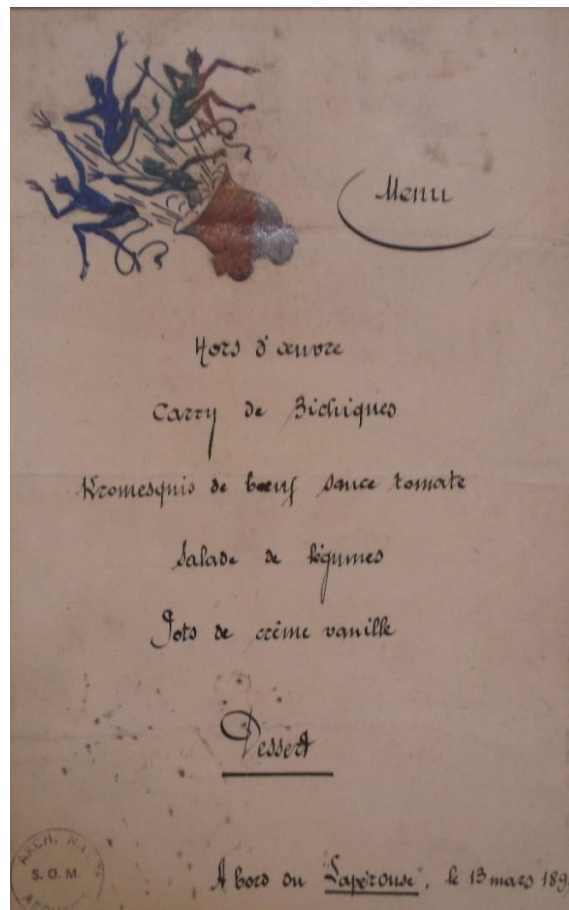 Menu
Hors d'œuvre
Carry de Bichiques
Kromesquis de bœuf sauce tomate
Salade de légumes
Pots de crème vanille
Dessert
A bord du Lapérouse, le 13 mars 189
ARCH. NAT
S.O.M.